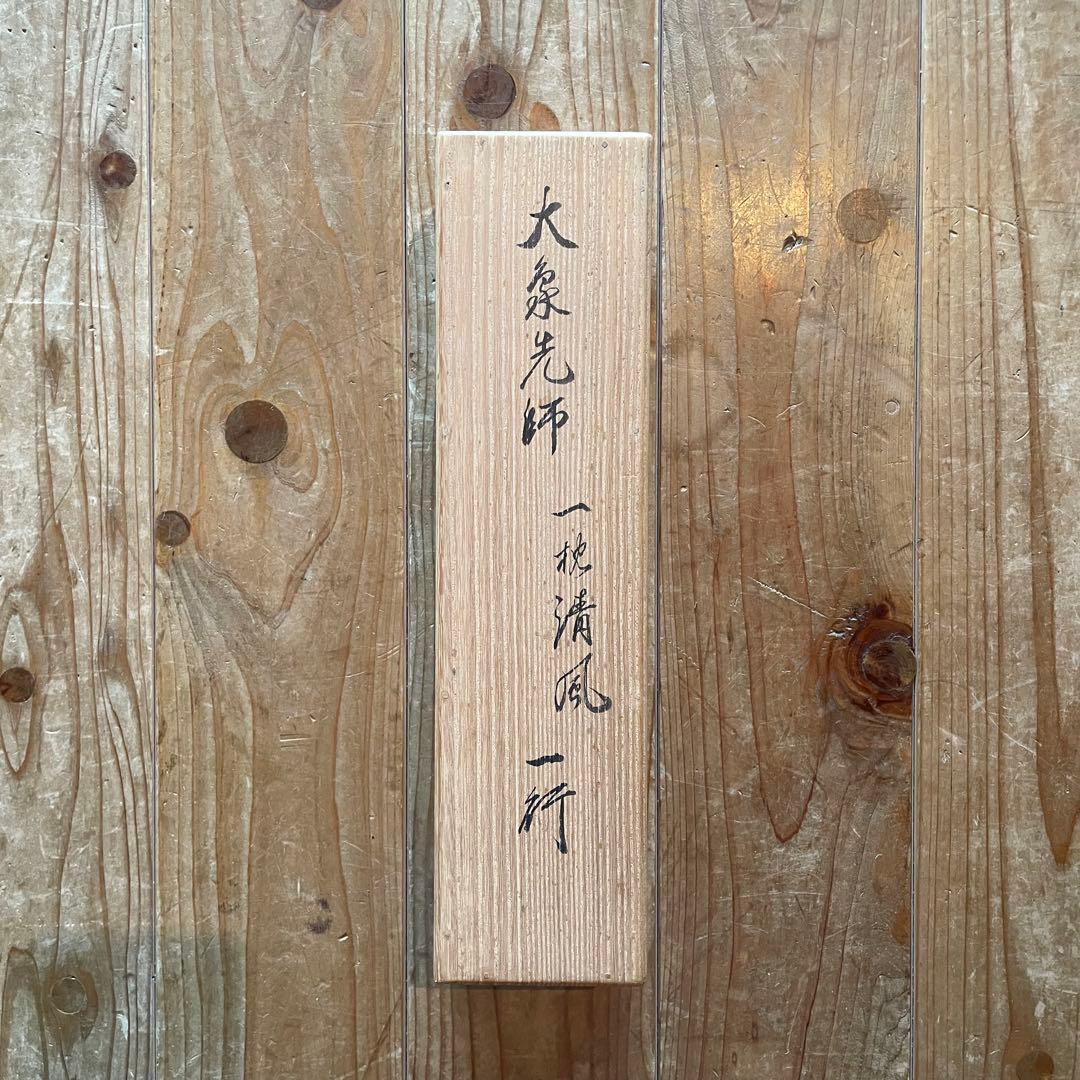 大象先師
一枕清風
一行